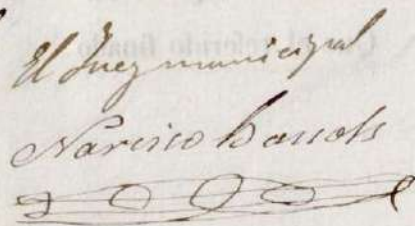 El Juez municipal
Narciso Bassols